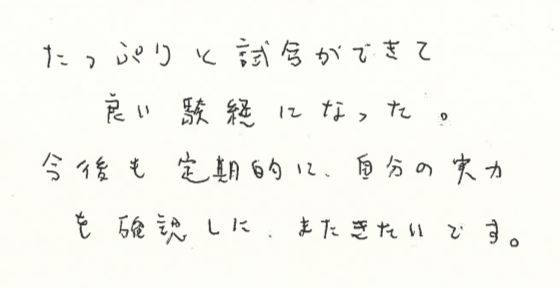 たっぷりと試合ができて
良い験経になった。
今後も定期的に、自分の実力
も確認しに、またきたいです。